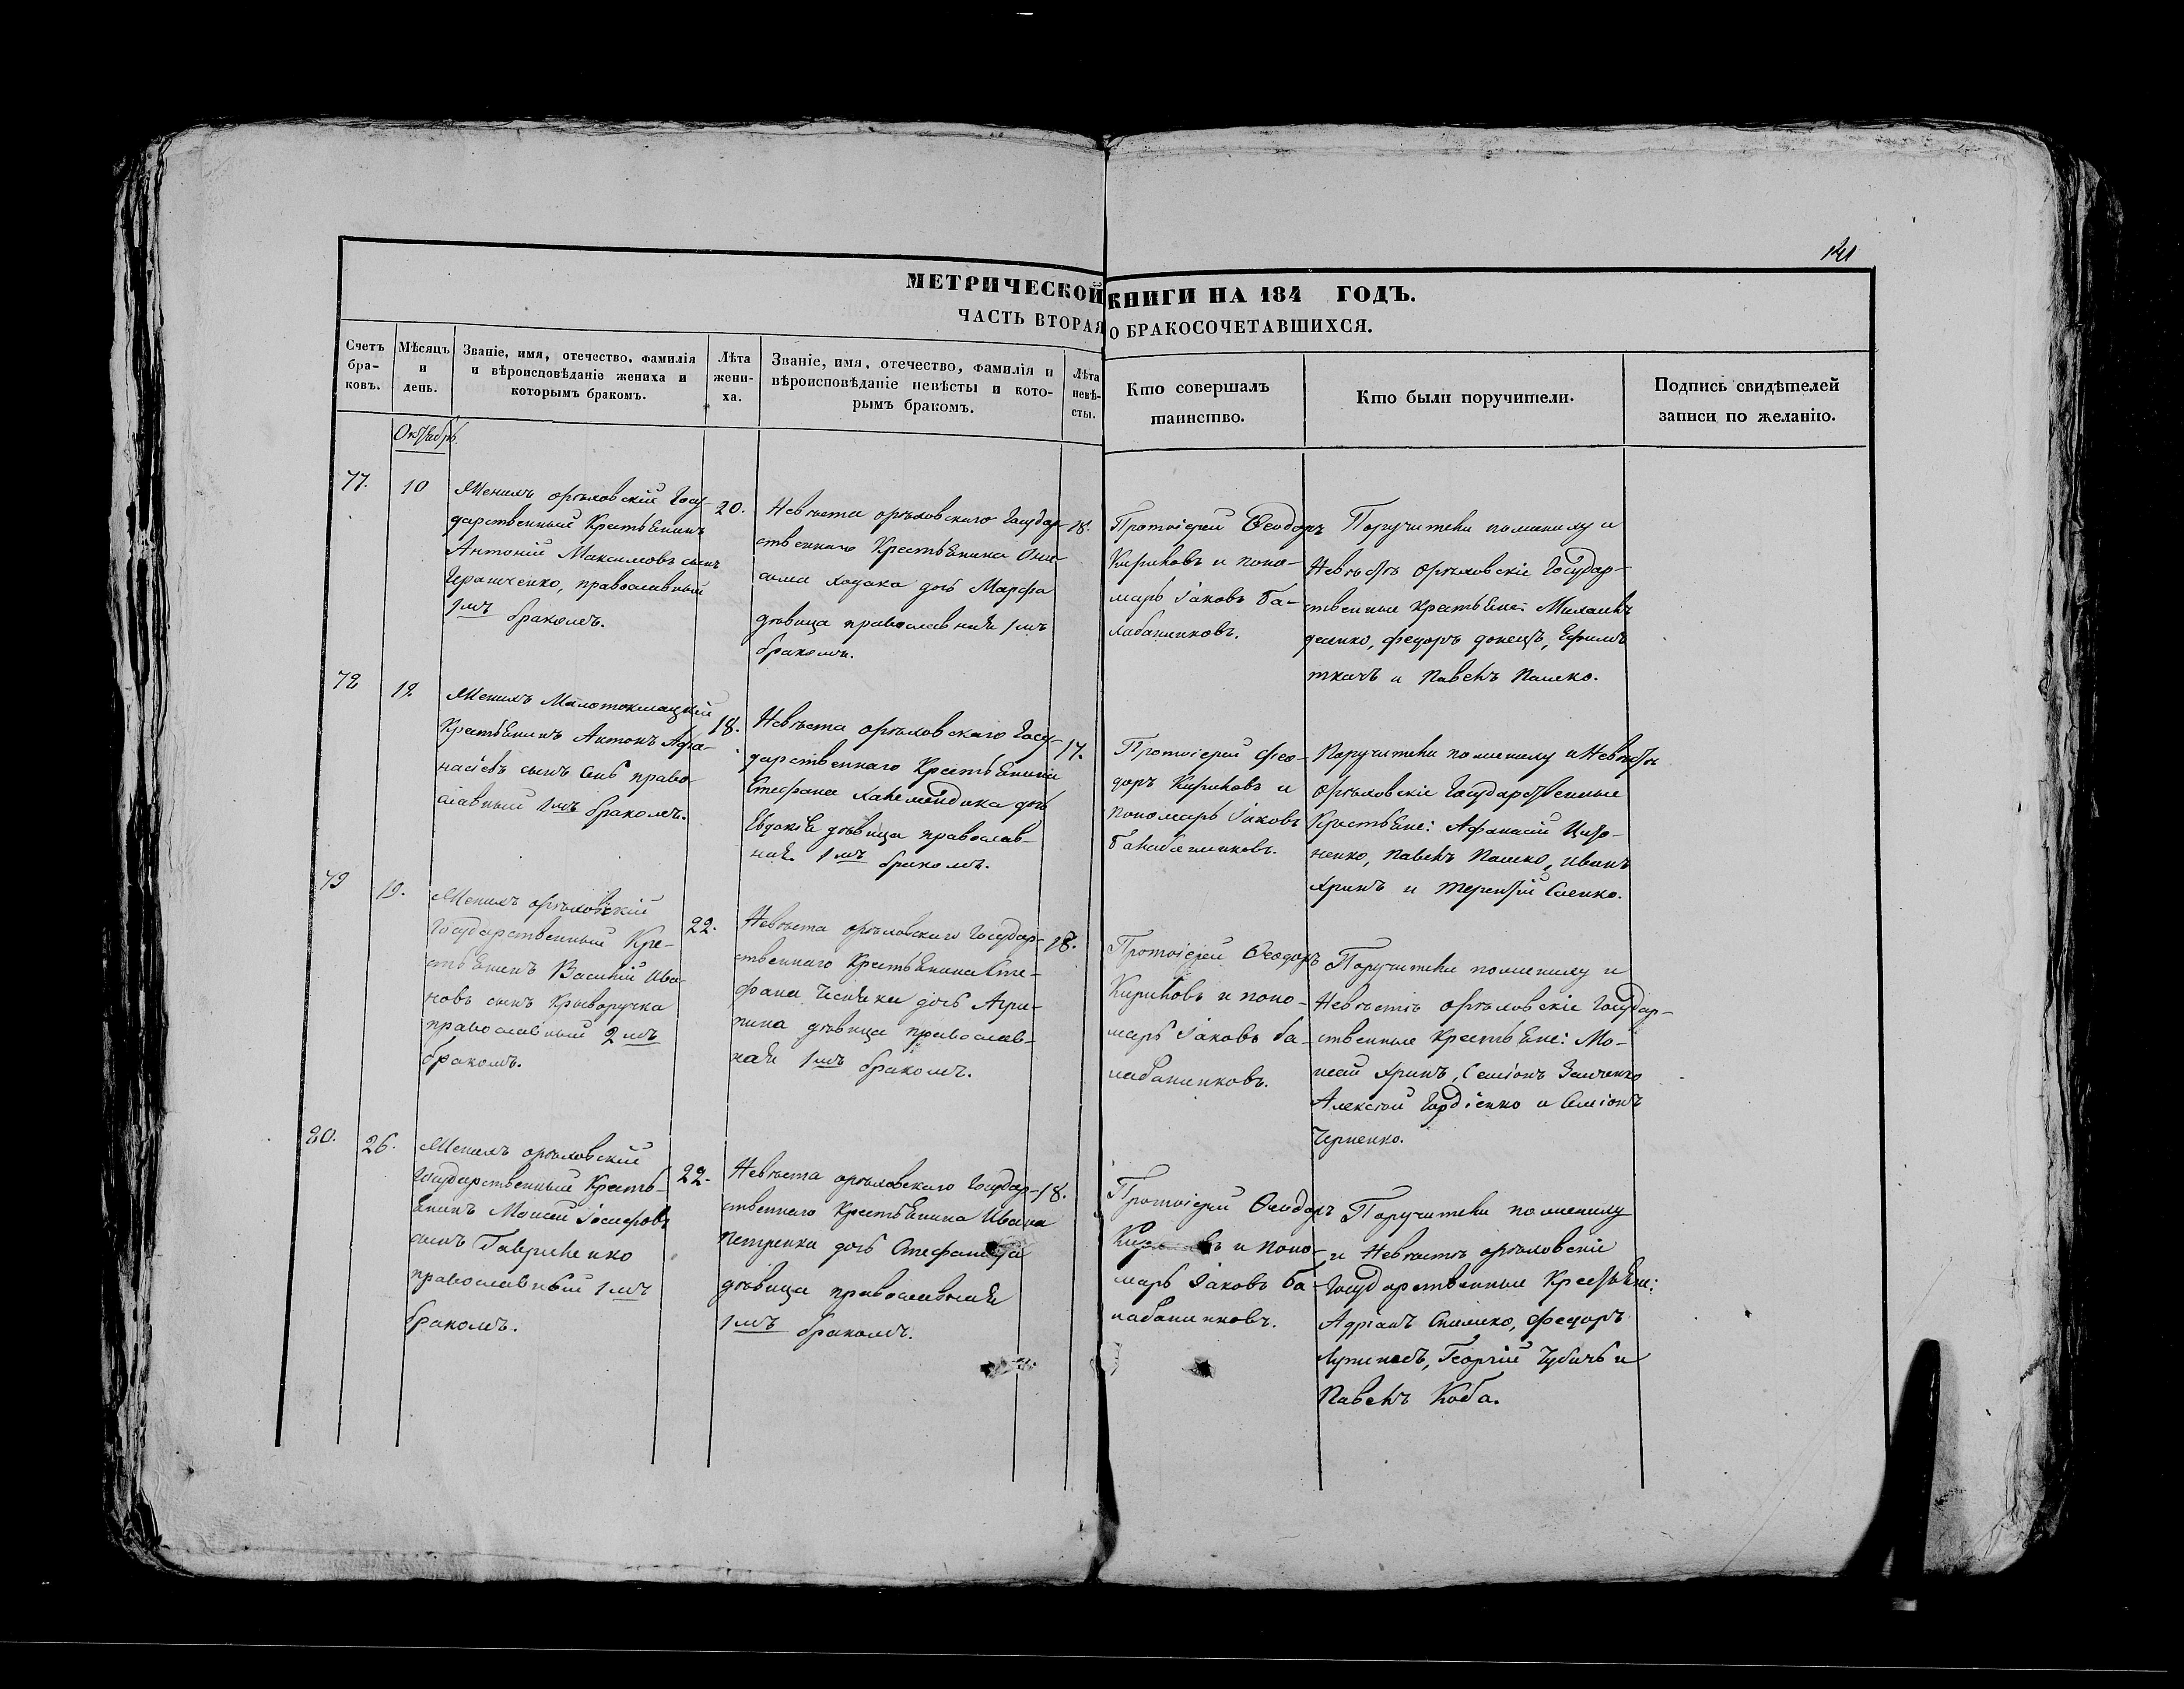 141
МЕТРИЧЕСКОЙ КНИГИ НА 184 ГОДЪ.
ЧАСТЬ ВТОРАЯ О БРАКОСОЧЕТАВШИХСЯ.
Счетъ
бра-
ковъ.
Мѣсяцъ
и
день.
Званіе, имя, отечество, фамилія
и вѣроисповѣданіе жениха и
которымъ бракомъ.
Лѣта
жени-
ха.
Званіе, имя, отечество, фамилія и
вѣроисповѣданіе невѣсты и кото-
рымъ бракомъ.
Лѣта
невѣ-
сты.
Кто совершалъ
таинство.
Кто были поручители.
Подпись свидѣтелей
записи по желанію.
Октябрь.
77.
10
Женихъ орѣховскій Госу-
дарственный Крестьянинъ
Антоній Максимовъ сынъ
православный
1мъ бракомъ.
20.
Невѣста орѣховскаго Государ-
ственнаго Крестьянина Они-
сима Ходака дочь Марфа
дѣвица православная 1мъ
бракомъ.
18.
Протоіерей Ѳеодоръ
Кириковъ и поно-
марь Іаковъ Ба-
лабанниковъ.
Поручители по жениху и
Невѣстѣ орѣховскіе Государ-
ственные крестьяне: Михаилъ
федоръ донецъ, Ефимъ
ткачъ и Павелъ Пашко.
78
12
Женихъ
Крестьянинъ Антонъ Афа-
насіевъ сынъ право-
славный 1мъ бракомъ.
18.
Невѣста орѣховскаго Госу-
дарственнаго Крестьянина
Стефана дочь
Евдокія дѣвица православ-
ная 1мъ бракомъ.
17.
Протоіерей Фео-
доръ Кириковъ и
пономарь Іаковъ
Балабанниковъ.
Поручители по жениху и Невѣстѣ
Орѣховскіе Государственные
Крестьяне: Афанасій
Павелъ Пашко, Иванъ
Хринъ и Терентій
79
19.
Женихъ орѣховскій
Государственный Кре-
стьянинъ Василій Ива-
новъ сынъ Криворучка
православный 2мъ
бракомъ.
22.
Невѣста орѣховскаго Государ-
ственнаго Крестьянина Сте-
фана дочь Агри-
пина дѣвица православ-
ная 1мъ бракомъ.
18.
Протоіерей Ѳеодоръ
Кириковъ и поно-
марь Іаковъ ба-
лабанниковъ.
Поручители по жениху и
Невѣстѣ орѣховскіе Государ-
ственные Крестьяне: Мо-
исей Хринъ, Семіонъ
Алексѣй Гордіенко и Семіонъ
Черненко.
80.
26.
Женихъ орѣховскій
Государственный Кресть-
янинъ Моисей Іосифовъ
сынъ Гавриленко
православный 1мъ
бракомъ.
22.
Невѣста орѣховскаго Государ-
ственнаго Крестьянина Ивана
Петренка дочь Стефанида
дѣвица православная
1мъ бракомъ.
18.
Протоіерей Ѳеодоръ
и поно-
марь Іаковъ ба-
лабанниковъ.
Поручители по жениху
и Невѣстѣ орѣховскіе
Государственные Крестьяне:
Адріанъ федоръ
Георгій и
Павелъ Коба.